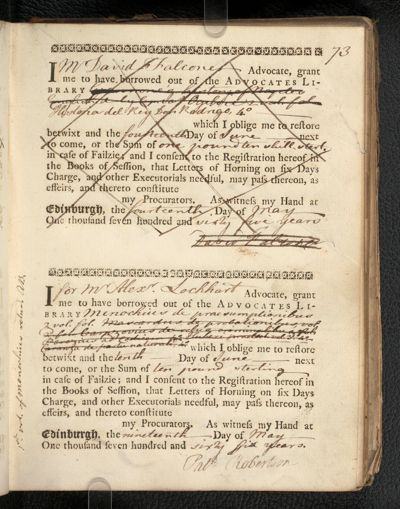 73
I Mr David Falconer Advocate, grant
me to have borrowed out of the ADVOCATES LI-
BRARY
Historia del Rey Don Rodrigo, 4o
which I oblige me to restore
betwixt and the fourteenth Day of June next
to come, or the Sum of one pound ten shill. sterl.
in case of Failzie; and I consent to the Registration hereof in
the Books of Session, that Letters of Horning on six Days
Charge, and other Executorials needful, may pass thereon, as
effeirs, and thereto constitute
my Procurators. As witness my Hand at
Edinburgh, the fourteenth Day of May
One thousand seven hundred and sixty five years
David Falconer
I for Mr Alexr. Lockhart Advocate, grant
me to have borrowed out of the ADVOCATES LI-
BRARY Menochius de praesumptionibus
2 vol. fol. Mascardus de probationibus vol.
which I oblige me to restore
betwixt and the tenth Day of June next
to come, or the Sum of ten pound sterling
in case of Failzie; and I consent to the Registration hereof in
the Books of Session, that Letters of Horning on six Days
Charge, and other Executorials needful, may pass thereon, as
effeirs, and thereto constitute
my Procurators. As witness my Hand at
Edinburgh, the nineteenth Day of May
One thousand seven hundred and sixty six years.
Patk. Robertson
vol. of menochius